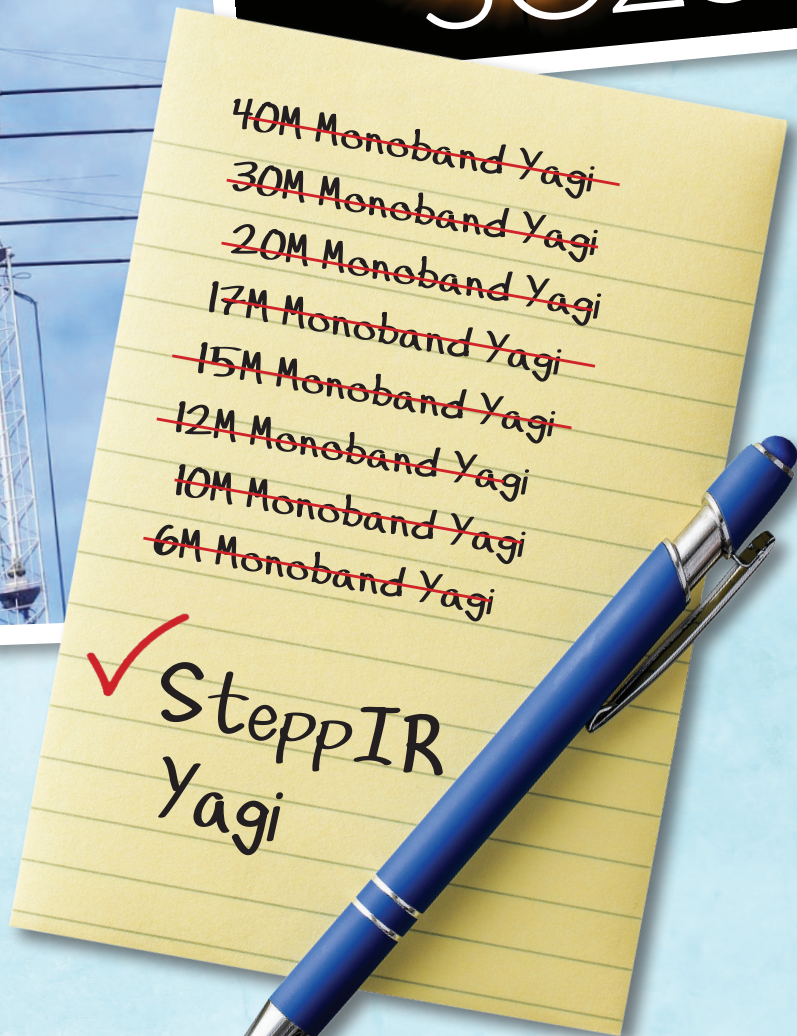 40M Monoband Yagi
30M Monoband Yagi
20M Monoband Yagi
17M Monoband Yagi
15M Monoband Yagi
12M Monoband Yagi
10M Monoband Yagi
6M Monoband Yagi
SteppIR
Yagi